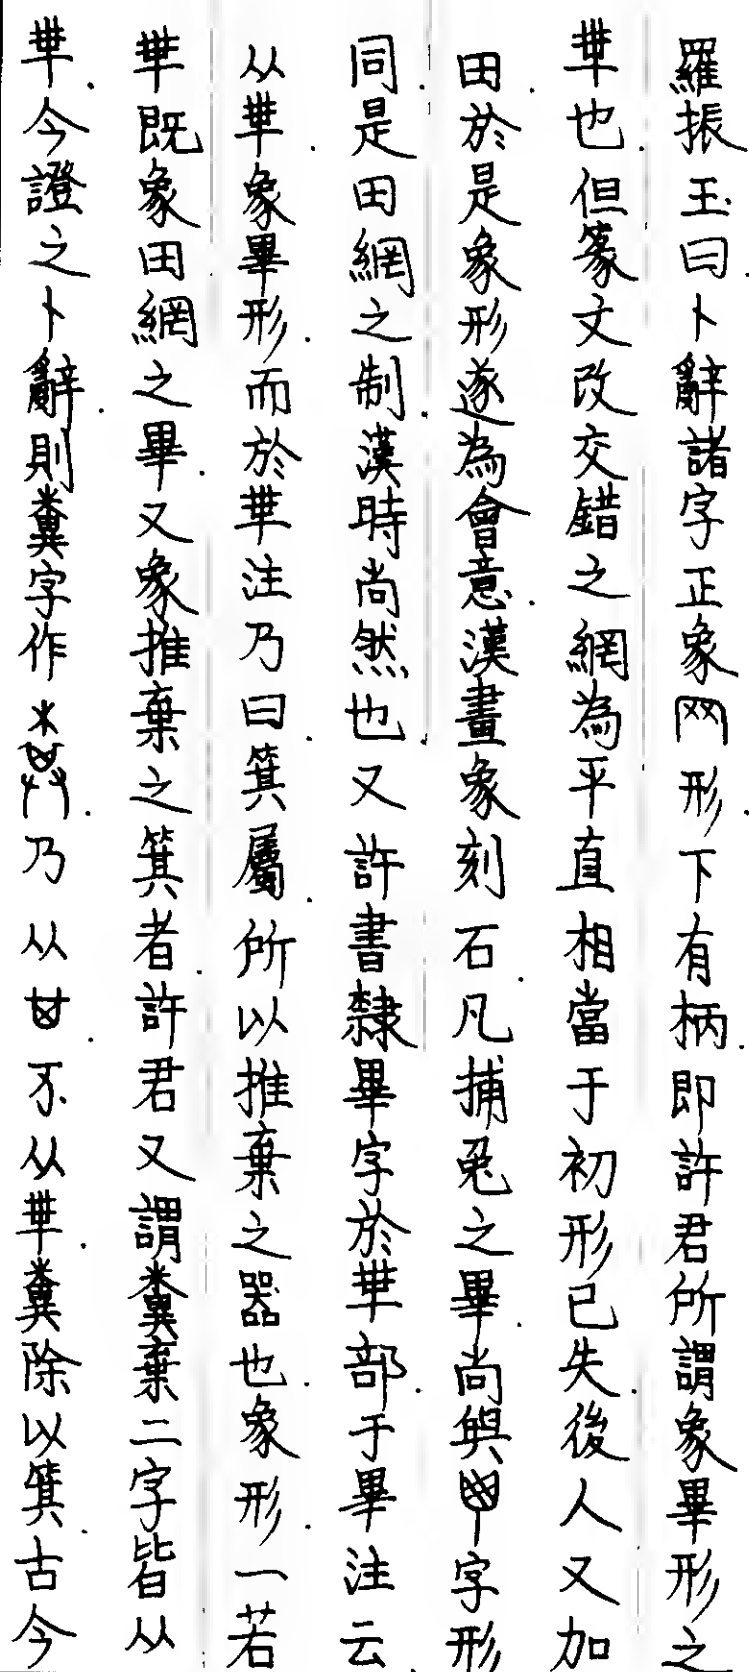 羅振玉曰卜辭諸字正象网形下有柄.即許君所謂象畢形之
𠦒也.但篆文改交錯之網為平直相當于初形已失.後人又加
田.於是象形遂為會意.漢畫象刻石.凡捕兔之畢.尚與字形
同.是田網之制.漢時尚然也.又許書隸畢字於𠦒部.于畢注云.
从𠦒.象畢形.而於𠦒注乃曰.箕屬.所以推棄之器也.象形.一若
𠦒既象田網之畢.又象推棄之箕者.許君又謂糞棄二字皆从
𠦒.今證之卜辭.則糞字作.乃从.不从𠦒.糞除以箕.古今